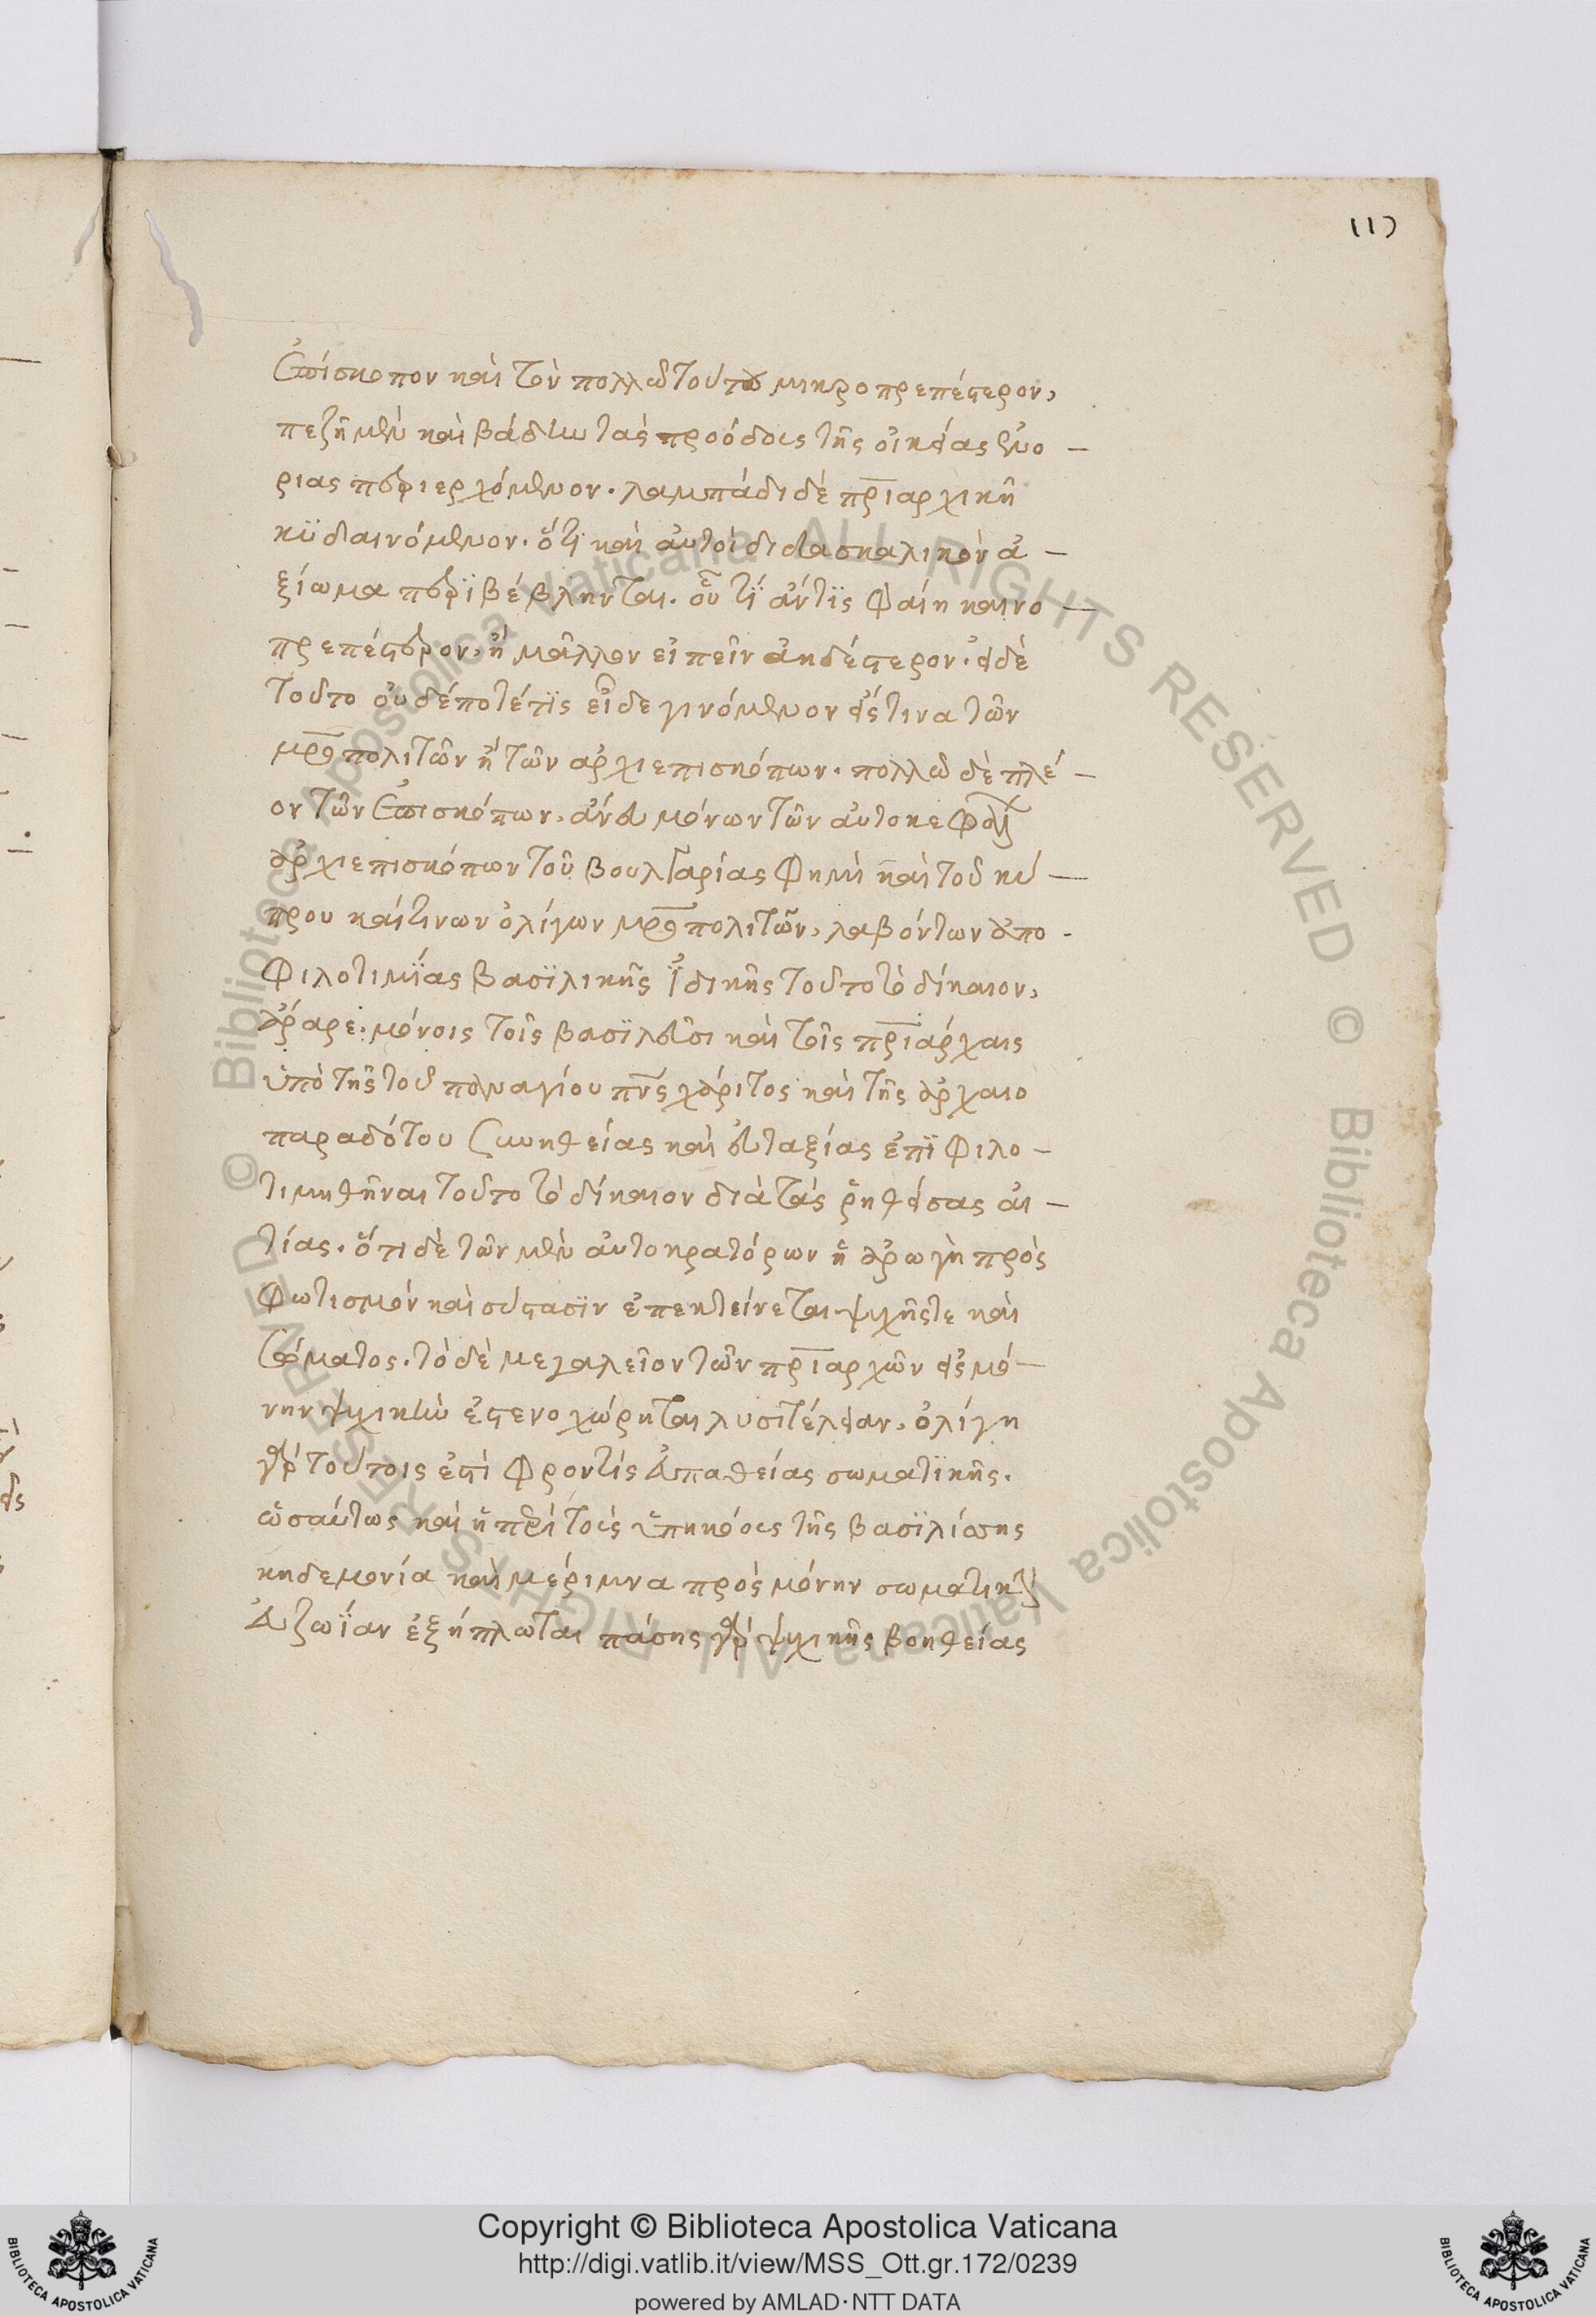 117
ἐπίσκοπον καὶ τὸν πολλῶ τούτου μικροπρεπέστερον,
πεζῆ μὲν καὶ βάδην τὰς προόδους τῆς οἰκείας ἐνο-
ρίας περιερχόμενον. λαμπάδι δὲ πριαρχικῆ
κϋδαινόμενον. ὅτι καὶ αὐτοὶ διδασκαλικὸν ἀ-
ξίωμα περϊβέβληνται. οὗ τΐ ἄντϊς φαίη καινο-
πρεπέστερον, ἢ μᾶλλον εἰπεῖν ἀηδέστερον. εἰ δὲ
τοῦτο οὐδέποτέ τϊς εἶδε γινόμενον εἴς τινα τῶν
μροπολιτῶν ἢ τῶν ἀρχιεπισκόπων. πολλῶ δὲ πλέ-
ον τῶν ἐπισκόπων, ἄνευ μόνων τῶν αὐτοκεφάλων
ἀρχιεπισκόπων τοῦ βουλγαρίας φημὶ καὶ τοῦ κύ-
πρου καί τινων ὀλίγων μροπολιτῶν, λαβόντων ἀπο
φιλοτιμΐας βασϊλικῆς ἰδικῆς τοῦτο τὸ δίκαιον,
ἄραρε. μόνοις τοῖς βασϊλεῦσι καὶ τοῖς πριάρχαις
ὑπὸ τῆς τοῦ παναγίου πνς χάριτος καὶ τῆς ἀρχαιο
παραδότου συνηθείας καὶ εὐταξίας ἐπϊφιλο-
τιμηθῆναι τοῦτο τὸ δίκαιον διὰ τὰς ῥηθείσας αἰ-
τίας. ὅτι δὲ τῶν μὲν αὐτοκρατόρων ἡ ἀρωγὴ πρὸς
φωτισμὸν καὶ σύστασϊν ἐπεκτείνεται ψυχῆς τε καὶ
σώματος. τὸ δὲ μεγαλεῖον τῶν πριαρχῶν εἰς μό-
νην ψυχικὴν ἐστενοχώρηται λυσιτέλειαν, ὀλίγη
γὰρ τούτοις ἐστὶ φροντὶς εὐπαθείας σωματϊκῆς.
ὡσαύτως καὶ ἡ περὶ τοὺς ὑπηκόους τῆς βασϊλίσσης
κηδεμονία καὶ μέριμνα πρὸς μόνην σωματικὴν
εὐζωΐαν ἐξήπλωται πάσης γὰρ ψυχικῆς βοηθείας
Copyright © Biblioteca Apostolica Vaticana
http://digi.vatlib.it/view/MSS_Ott.gr.172/0239
powered by AMLAD·NTT DATA
BIBLIOTECA APOSTOLICA VATICANA
BIBLIOTECA APOSTOLICA VATICANA
© Biblioteca Apostolica Vaticana ALL RIGHTS RESERVED
© Biblioteca Apostolica Vaticana ALL RIGHTS RESERVED